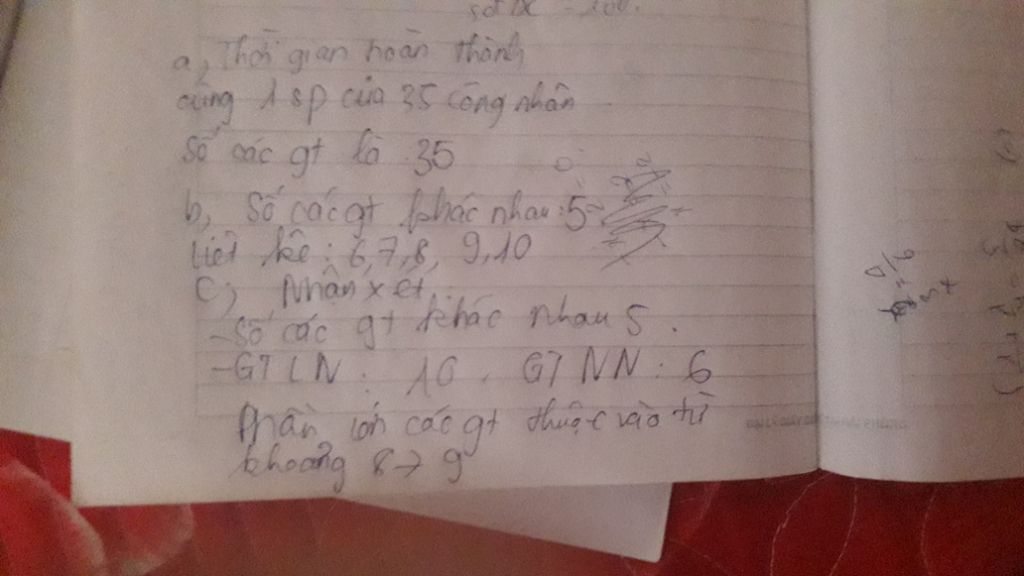 a, Thời gian hoàn thành
cùng 1 sp của 35 công nhân
Số các gt là 35
b, Số các gt khác nhau: 5
Liệt kê: 6,7,8, 9,10
C, Nhận xét:
- Số các gt khác nhau 5.
- GTLN: 10. GTNN: 6
Phần lớn các gt thuộc vào từ
khoảng 8 → 9